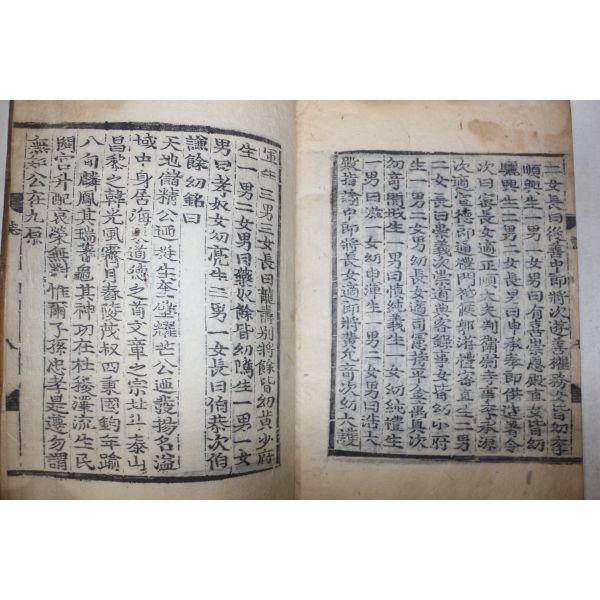 二女長曰後善中郎將次遊善權務女皆幼李
順興生一男二女男曰有喜崇忠殿直女皆幼
驪興生二男二女長男曰申承孝郎俱進署令
次曰密長女適正順大夫判衛尉寺事李承源
次適宣德郎通禮門祗候郭洛禮賓直生二男
二女長男曰崇義次崇道典客錄事女皆幼小府
生一男二女男幼長女適司電指李金禺具次
幼奇閣戒生一男曰慎純義生一女幼純禮生
一男曰 一女幼申漣生一男二女男曰浩大
殿指諭中郎將長女適郎將黃允奇次幼大護
軍生三男三女長曰龍壽別將餘皆幼黃少府
生一男二女男曰藥奴餘皆幼 生一男一女
男曰孝奴女幼亮生二男一女長曰伯恭次伯
謙餘幼銘曰
天地儲精公廼挺生奎壁耀芒公廼發揚名溢
域中身居海 道德之首文章之宗北斗泰山
昌黎之韓光風霽月舂陵茂叔四秉國鈞年踰
八旬麟鳳其瑞蓍龜其神功在社稷澤流生民
閟宮升配哀榮無對惟爾子孫忠孝是遵勿謂
無知公在九原
誌